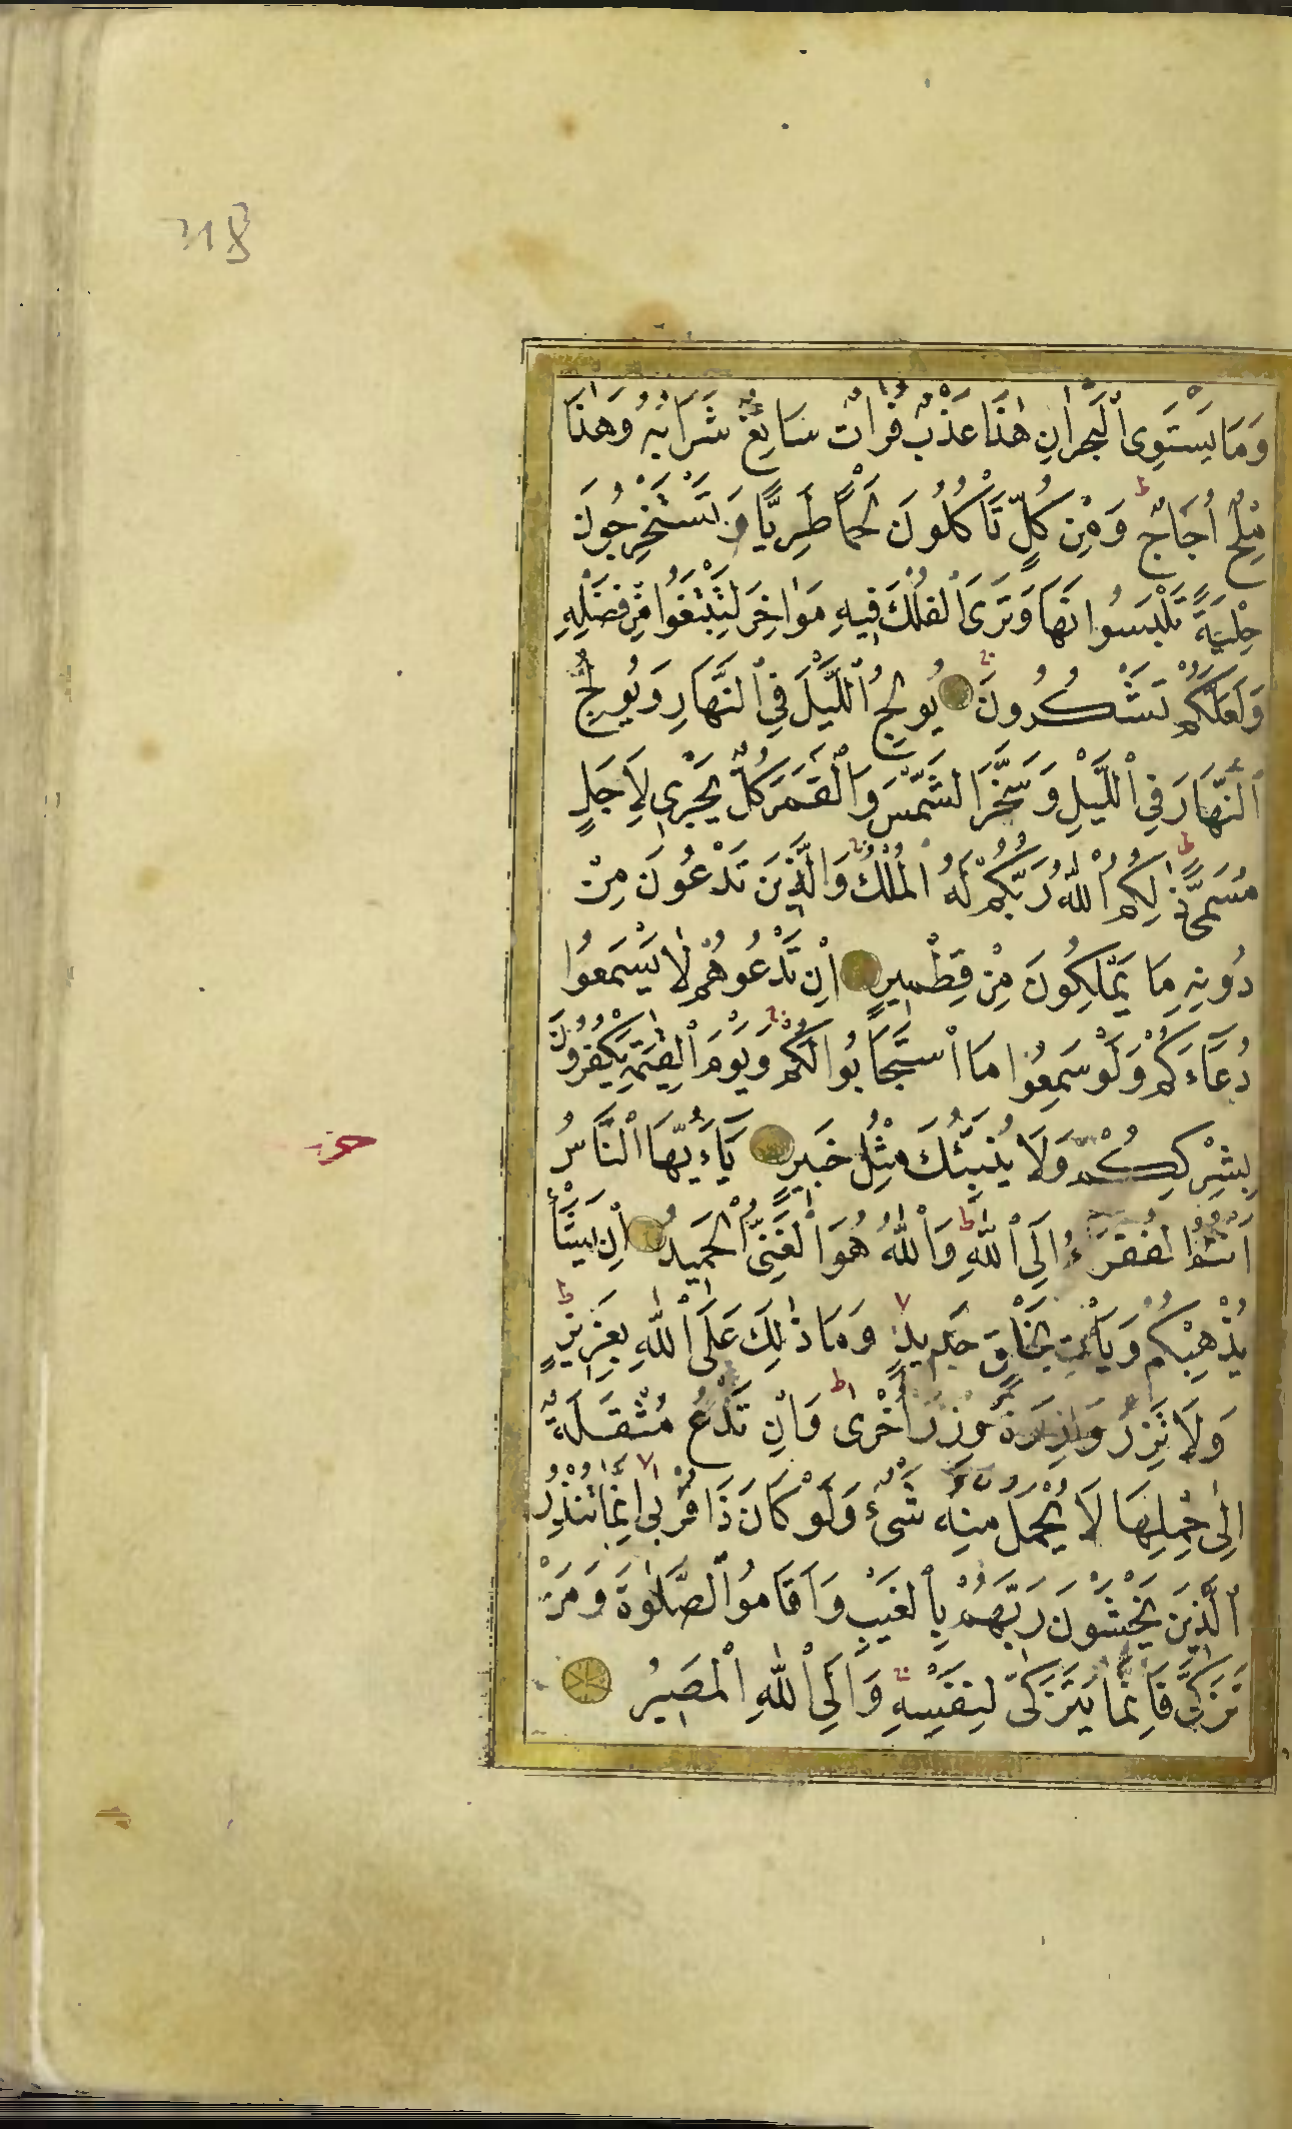 218
وَمَا يَسْتَوِى ٱلْبَحْرَانِ هٰذَا عَذْبٌ فُرَاتٌ سَايِغٌ شَرَابُهُ وَهٰذَا
مِلْحٌ اُجَاجٌ ط وَمِنْ كُلٍّ تَأْكُلُونَ لَحْمًا طَرِيًّا وَتَسْتَخْرِجُونَ
حِلْيَةً تَلْبَسُونَهَا وَتَرَى ٱلْفُلْكَ فِيهِ مَوَاخِرَ لِتَبْتَغُوا مِنْ فَضْلِهِ
وَلَعَلَّكُمْ تَشْكُرُونَ يُولِجُ ٱللَّيْلَ فِى ٱلنَّهَارِ وَيُولِجُ
ٱلنَّهَارَ فِى ٱللَّيْلِ وَسَخَّرَ الشَّمْسَ وَٱلْقَمَرَ كُلٌّ يَجْرِى لِاَجَلٍ
مُسَمًّى ط ذٰلِكُمُ ٱللّٰهُ رَبُّكُمْ لَهُ الْمُلْكُ وَالَّذِينَ تَدْعُونَ مِنْ
دُونِهِ مَا يَمْلِكُونَ مِنْ قِطْمِيرٍ اِنْ تَدْعُوهُمْ لَا يَسْمَعُوا
دُعَاءَكُمْ وَلَوْ سَمِعُوا مَا ٱسْتَجَابُوا لَكُمْ وَيَوْمَ ٱلْقِيٰمَةِ يَكْفُرُونَ
بِشِرْكِكُمْ وَلَا يُنَبِّئُكَ مِثْلُ خَبِيرٍ يَاءَيُّهَا ٱلنَّاسُ
حز
اَنْتُمُ الْفُقَرَاءُ اِلَى ٱللّٰهِ ط وَٱللّٰهُ هُوَ ٱلْغَنِىُّ ٱلْحَمِيدُ اِنْ يَشَأْ
يُذْهِبْكُمْ وَيَأْتِ بِخَلْقٍ جَدِيدٍ وَمَا ذٰلِكَ عَلَى ٱللّٰهِ بِعَزِيزٍ ط
وَلَا تَزِرُ وَازِرَةٌ وِزْرَ اُخْرٰى ط وَاِنْ تَدْعُ مُثْقَلَةٌ
اِلٰى حِمْلِهَا لَا يُحْمَلْ مِنْهُ شَىْءٌ وَلَوْ كَانَ ذَا قُرْبٰى اِنَّمَا تُنْذِرُ
ٱلَّذِينَ يَخْشَوْنَ رَبَّهُمْ بِٱلْغَيْبِ وَاَقَامُوا ٱلصَّلٰوةَ وَمَنْ
تَزَكّٰى فَاِنَّمَا يَتَزَكّٰى لِنَفْسِهِ وَاِلَى ٱللّٰهِ ٱلْمَصِيرُ